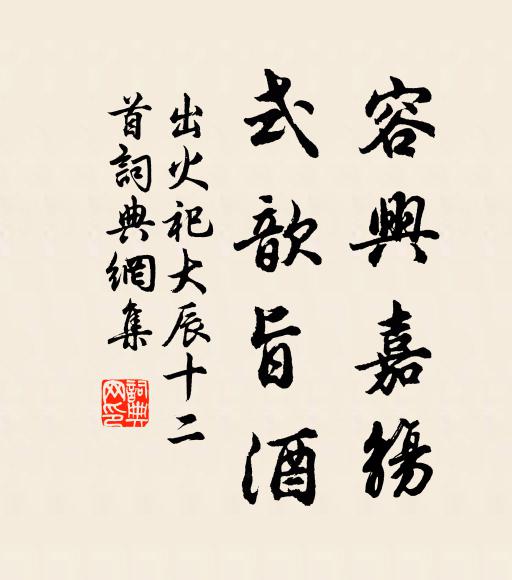 容興嘉觴
式歆旨酒
出火祀大辰十二
首詞典網集
詞典
网印